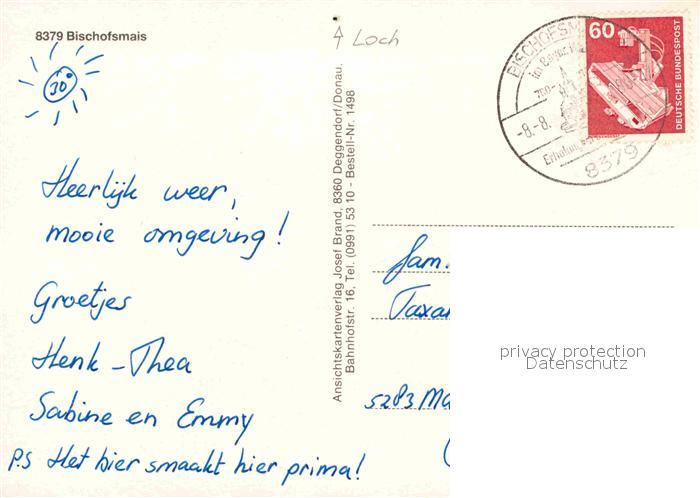 8379 Bischofsmais
30°
Heerlijk weer,
mooie omgeving!
Groetjes
Henk - Thea
Sabine en Emmy
P.S Het bier smaakt hier prima!
Ansichtskartenverlag Josef Brand, 8360 Deggendorf/Donau,
Bahnhofstr. 16, Tel. (0991) 53 10 - Bestell-Nr. 1498
Loch
60
DEUTSCHE BUNDESPOST
-8.-8.
8379
fam.
5283
privacy protection
Datenschutz